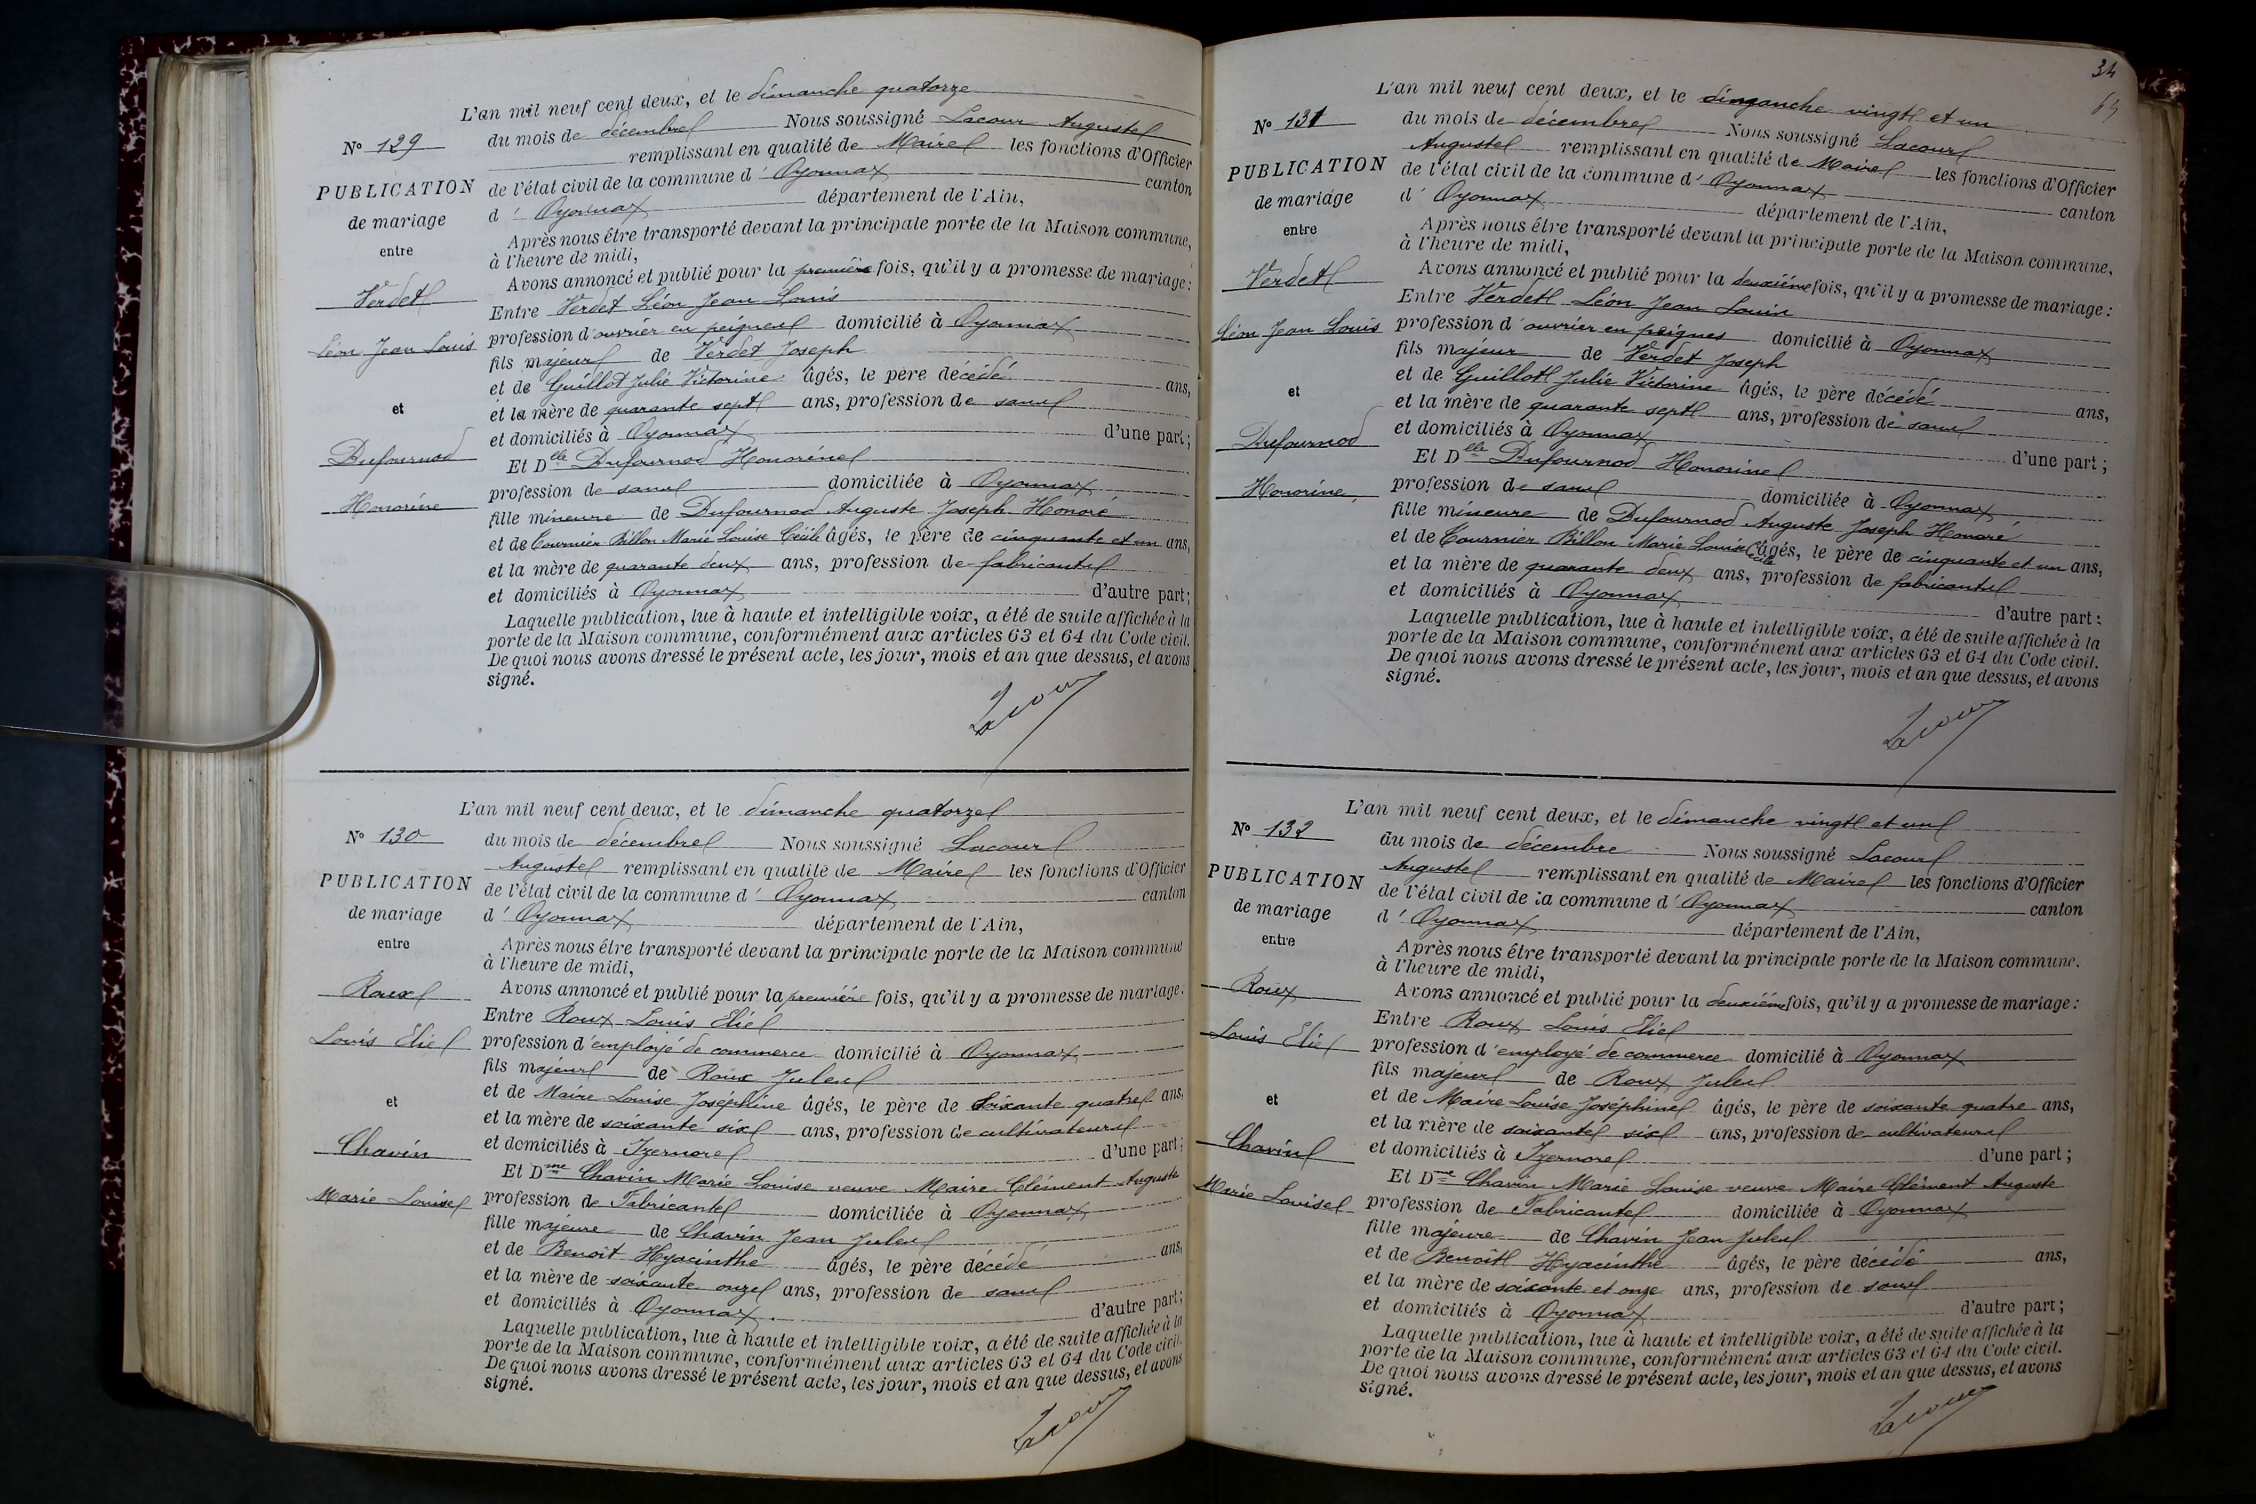 L'an mil neuf cent deux, et le dimanche quatorze
N° 129
du mois de décembre Nous soussigné Lacour Auguste
remplissant en qualité de Maire les fonctions d'Officier
PUBLICATION
de l'état civil de la commune d' Oyonnax canton
de mariage
d' Oyonnax département de l'Ain,
entre
Après nous être transporté devant la principale porte de la Maison commune,
à l'heure de midi,
Avons annoncé et publié pour la première fois, qu'il y a promesse de mariage:
Verdet
Entre Verdet Léon Jean Louis
Léon Jean Louis
profession d'ouvrier en peignes domicilié à Oyonnax
fils majeur de Verdet Joseph
et de Guillot Julie Victorine âgés, le père décédé ans,
et
et la mère de quarante sept ans, profession de sans
et domiciliés à Oyonnax d'une part;
Dufournod
Et Dlle Dufournod Honorine
profession de sans domiciliée à Oyonnax
Honorine
fille mineure de Dufournod Auguste Joseph Honoré
et de Tournier Billon Marie Louise Cécile âgés, le père de cinquante et un ans,
et la mère de quarante deux ans, profession de fabricants
et domiciliés à Oyonnax d'autre part;
Laquelle publication, lue à haute et intelligible voix, a été de suite affichée à la
porte de la Maison commune, conformément aux articles 63 et 64 du Code civil.
De quoi nous avons dressé le présent acte, les jour, mois et an que dessus, et avons
signé.
Lacour
L'an mil neuf cent deux, et le dimanche quatorze
N° 130
du mois de décembre Nous soussigné Lacour
Auguste remplissant en qualité de Maire les fonctions d'Officier
PUBLICATION
de l'état civil de la commune d' Oyonnax canton
de mariage
d' Oyonnax département de l'Ain,
entre
Après nous être transporté devant la principale porte de la Maison commune
à l'heure de midi,
Roux
Avons annoncé et publié pour la première fois, qu'il y a promesse de mariage.
Entre Roux Louis Elie
Louis Elie
profession d'employé de commerce domicilié à Oyonnax
fils majeur de Roux Jules
et de Maire Louise Joséphine âgés, le père de soixante quatre ans,
et
et la mère de soixante six ans, profession de cultivateurs
Chavin
et domiciliés à Izernore d'une part;
Et Dme Chavin Marie Louise veuve Maire Clément Auguste
Marie Louise
profession de Fabricante domiciliée à Oyonnax
fille majeure de Chavin Jean Jules
et de Benoit Hyacinthe âgés, le père décédé ans,
et la mère de soixante onze ans, profession de sans
et domiciliés à Oyonnax d'autre part;
Laquelle publication, lue à haute et intelligible voix, a été de suite affichée à la
porte de la Maison commune, conformément aux articles 63 et 64 du Code civil.
De quoi nous avons dressé le présent acte, les jour, mois et an que dessus, et avons
signé.
Lacour
34
L'an mil neuf cent deux, et le dimanche vingt et un
N° 131
du mois de décembre Nous soussigné Lacour
Auguste remplissant en qualité de Maire les fonctions d'Officier
PUBLICATION
de l'état civil de la commune d' Oyonnax canton
de mariage
d' Oyonnax département de l'Ain,
entre
Après nous être transporté devant la principale porte de la Maison commune,
à l'heure de midi,
Verdet
Avons annoncé et publié pour la deuxième fois, qu'il y a promesse de mariage:
Entre Verdet Léon Jean Louis
Léon Jean Louis
profession d'ouvrier en peignes domicilié à Oyonnax
fils majeur de Verdet Joseph
et de Guillot Julie Victorine âgés, le père décédé ans,
et
et la mère de quarante sept ans, profession de sans
et domiciliés à Oyonnax d'une part;
Dufournod
Et Dlle Dufournod Honorine
Honorine
profession de sans domiciliée à Oyonnax
fille mineure de Dufournod Auguste Joseph Honoré
et de Tournier Billon Marie Louise Cécile âgés, le père de cinquante et un ans,
et la mère de quarante deux ans, profession de fabricants
et domiciliés à Oyonnax d'autre part:
Laquelle publication, lue à haute et intelligible voix, a été de suite affichée à la
porte de la Maison commune, conformément aux articles 63 et 64 du Code civil.
De quoi nous avons dressé le présent acte, les jour, mois et an que dessus, et avons
signé.
Lacour
L'an mil neuf cent deux, et le dimanche vingt et un
N° 132
du mois de décembre Nous soussigné Lacour
Auguste remplissant en qualité de Maire les fonctions d'Officier
PUBLICATION
de l'état civil de la commune d' Oyonnax canton
de mariage
d' Oyonnax département de l'Ain,
entre
Après nous être transporté devant la principale porte de la Maison commune.
à l'heure de midi,
Roux
Avons annoncé et publié pour la deuxième fois, qu'il y a promesse de mariage:
Entre Roux Louis Elie
Louis Elie
profession d'employé de commerce domicilié à Oyonnax
fils majeur de Roux Jules
et de Maire Louise Joséphine âgés, le père de soixante quatre ans,
et
et la mère de soixante six ans, profession de cultivateurs
Chavin
et domiciliés à Izernore d'une part;
Et Dme Chavin Marie Louise veuve Maire Clément Auguste
Marie Louise
profession de Fabricante domiciliée à Oyonnax
fille majeure de Chavin Jean Jules
et de Benoit Hyacinthe âgés, le père décédé ans,
et la mère de soixante et onze ans, profession de sans
et domiciliés à Oyonnax d'autre part;
Laquelle publication, lue à haute et intelligible voix, a été de suite affichée à la
porte de la Maison commune, conformément aux articles 63 et 64 du Code civil.
De quoi nous avons dressé le présent acte, les jour, mois et an que dessus, et avons
signé.
Lacour